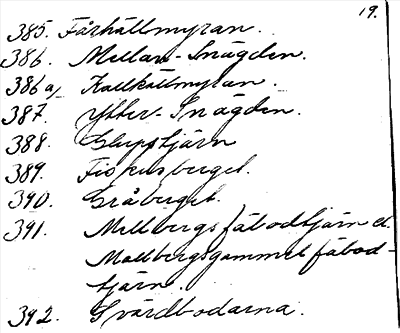 19.
385. Fårhällmyran.
386. Mellan-Snägden.
386 a, Kallkällmyran.
387. Ytter-Snägden.
388. Glupstjärn
389. Fiskusberget.
390. Gråberget.
391. Mellbergsfäbodtjärn el.
Mallbergsgammelfäbod-
tjärn.
392. Svärdbodarna.